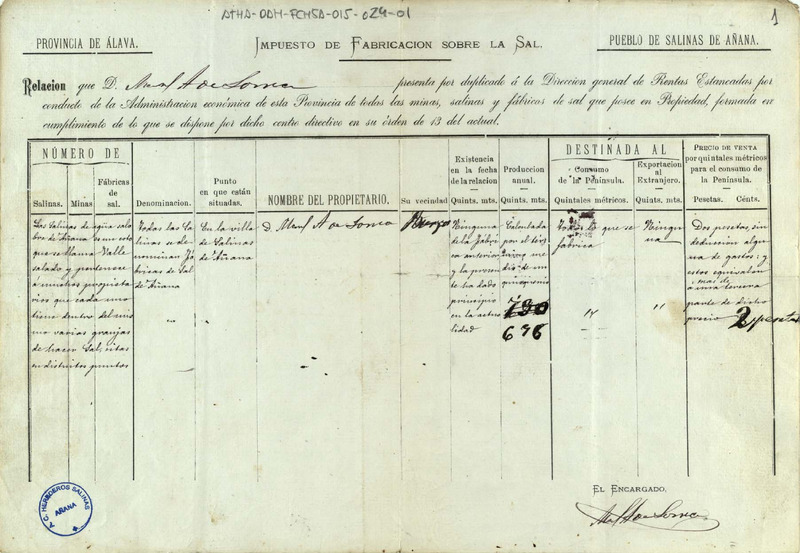 ATHA-DAH-FCMSA-015-024-01
1
PROVINCIA DE ÁLAVA.
IMPUESTO DE FABRICACION SOBRE LA SAL.
PUEBLO DE SALINAS DE AÑANA.
Relacion que D. presenta por duplicado á la Direccion general de Rentas Estancadas por
conducto de la Administracion económica de esta Provincia de todas las minas, salinas y fábricas de sal que posee en Propiedad, formada en
cumplimiento de lo que se dispone por dicho centro directivo en su órden de 13 del actual.
NÚMERO DE
Salinas.
Minas
Fábricas de sal.
DENOMINACION.
Punto
en que están
situadas.
NOMBRE DEL PROPIETARIO.
Su vecindad
Existencia
en la fecha
de la relacion
Quints. mts.
Produccion
anual.
Quints. mts.
DESTINADA AL
Consumo
de la Península.
Quintales métricos.
Exportacion
al
Extranjero.
Quints. mts.
PRECIO DE VENTA
por quintales métricos
para el consumo de
la Península.
Pesetas. Cénts.
Las Salinas de agua sala
bre de Añana es un este
que se llama Valle
salado y pertenece
á muchos propieta
rios que cada uno
tiene dentro del mis
mo varias granjas
de hacer Sal, sitas
en distintos puntos
Todas las Sa
linas se de
nominan Fá
bricas de Sal
de Añana
En la villa
de Salinas
de Añana
D.
Burgos
Ninguna
de la fábrica
anterior,
y la presen
te ha dado
principio
en la actua
lidad
Calculada
por el tér
mino me
dio de un
quinquenio
730
676
todo lo que se
fabrica
"
Ningu
na
"
Dos pesetas, sin
deduccion algu
na de gastos: y
estos equivalen
mas de
á una tercera
parte de dicho
precio 2 pesetas
EL ENCARGADO,
C. HEREDEROS SALINAS
AÑANA